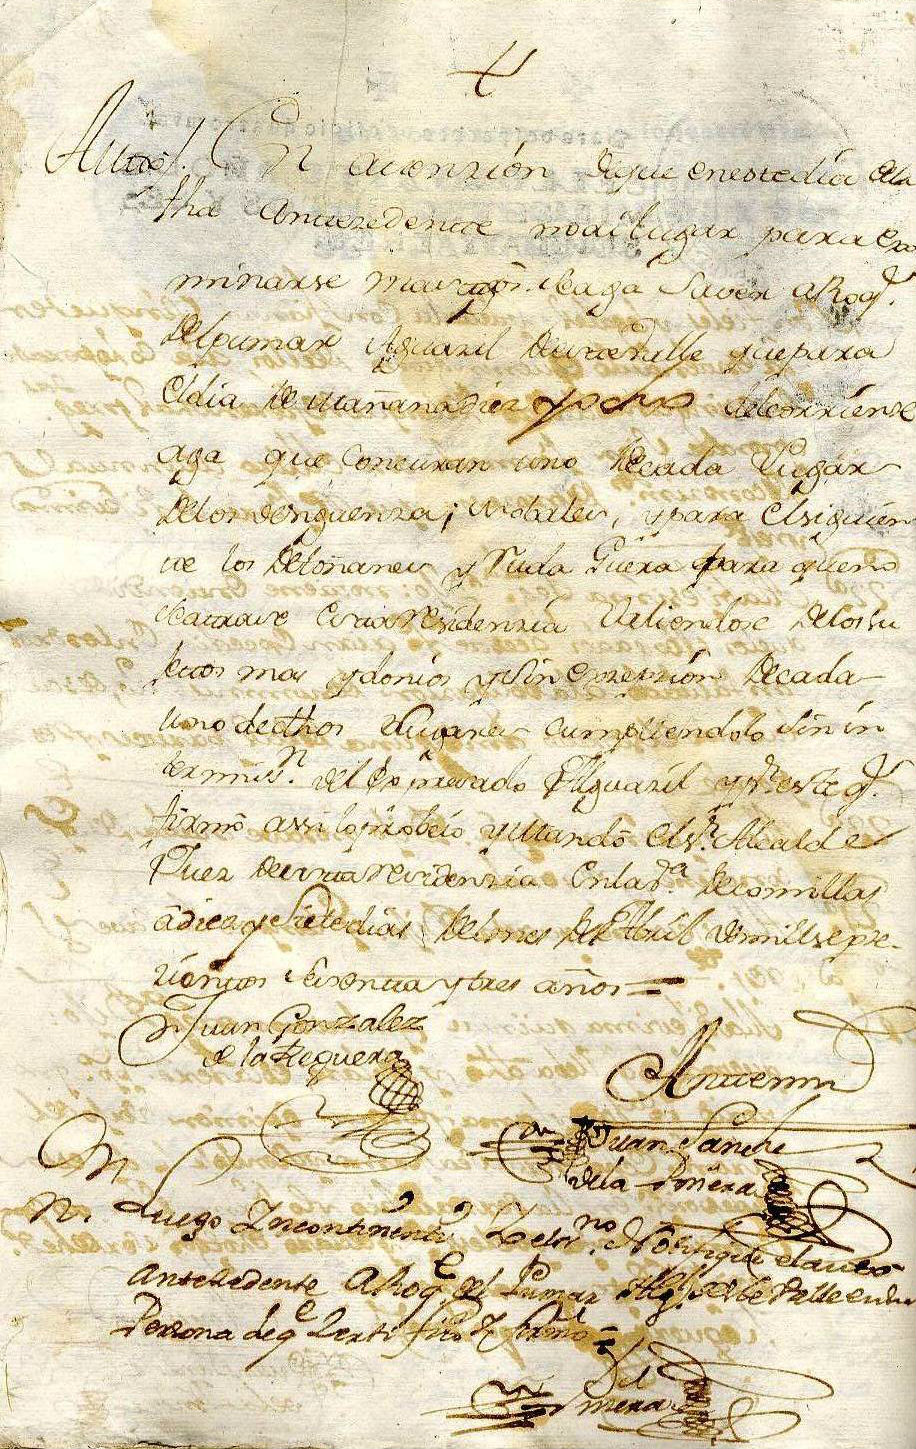 Auto. En atenzión deque enestedía dela
fha Antezedente no ai lugar para Exa
minarse mas tgos. Hagà Saver aRoq.
Delpumar Alguazil Deeste Valle que para
Eldia De Mañana diez y ocho del corriente
aga que Concurran uno De cada Lugar
Delos de y para elsiguien
te los De loñanes y Ruda Guera para que no
se atrase Esta residenzía Valiendose Delos su
Jetos mas ydonios y Sin Exzepzión De cada
uno de dhos Lugares cumpliendolo Sin in
termis.n del Expresado Alguazil y Pr este q.
firmò assi lo probeió y Mandó el sr. Alcalde
Juez De esta residenzia En la Va. De Comillas
â diez y Siete dias Del mes de Abril de mill Septe-
zientos Sesenta y tres años =
Juan Gonzalez
de la Reguera
Antemi
Juan Sanchez
de la
N. Luego Incontinenti Yo el ssno. Notifiqué el auto
Antezedente A Roq.e del Pumar Alg.l de este Valle en su
Persona de q.e Zertifico y firmo =